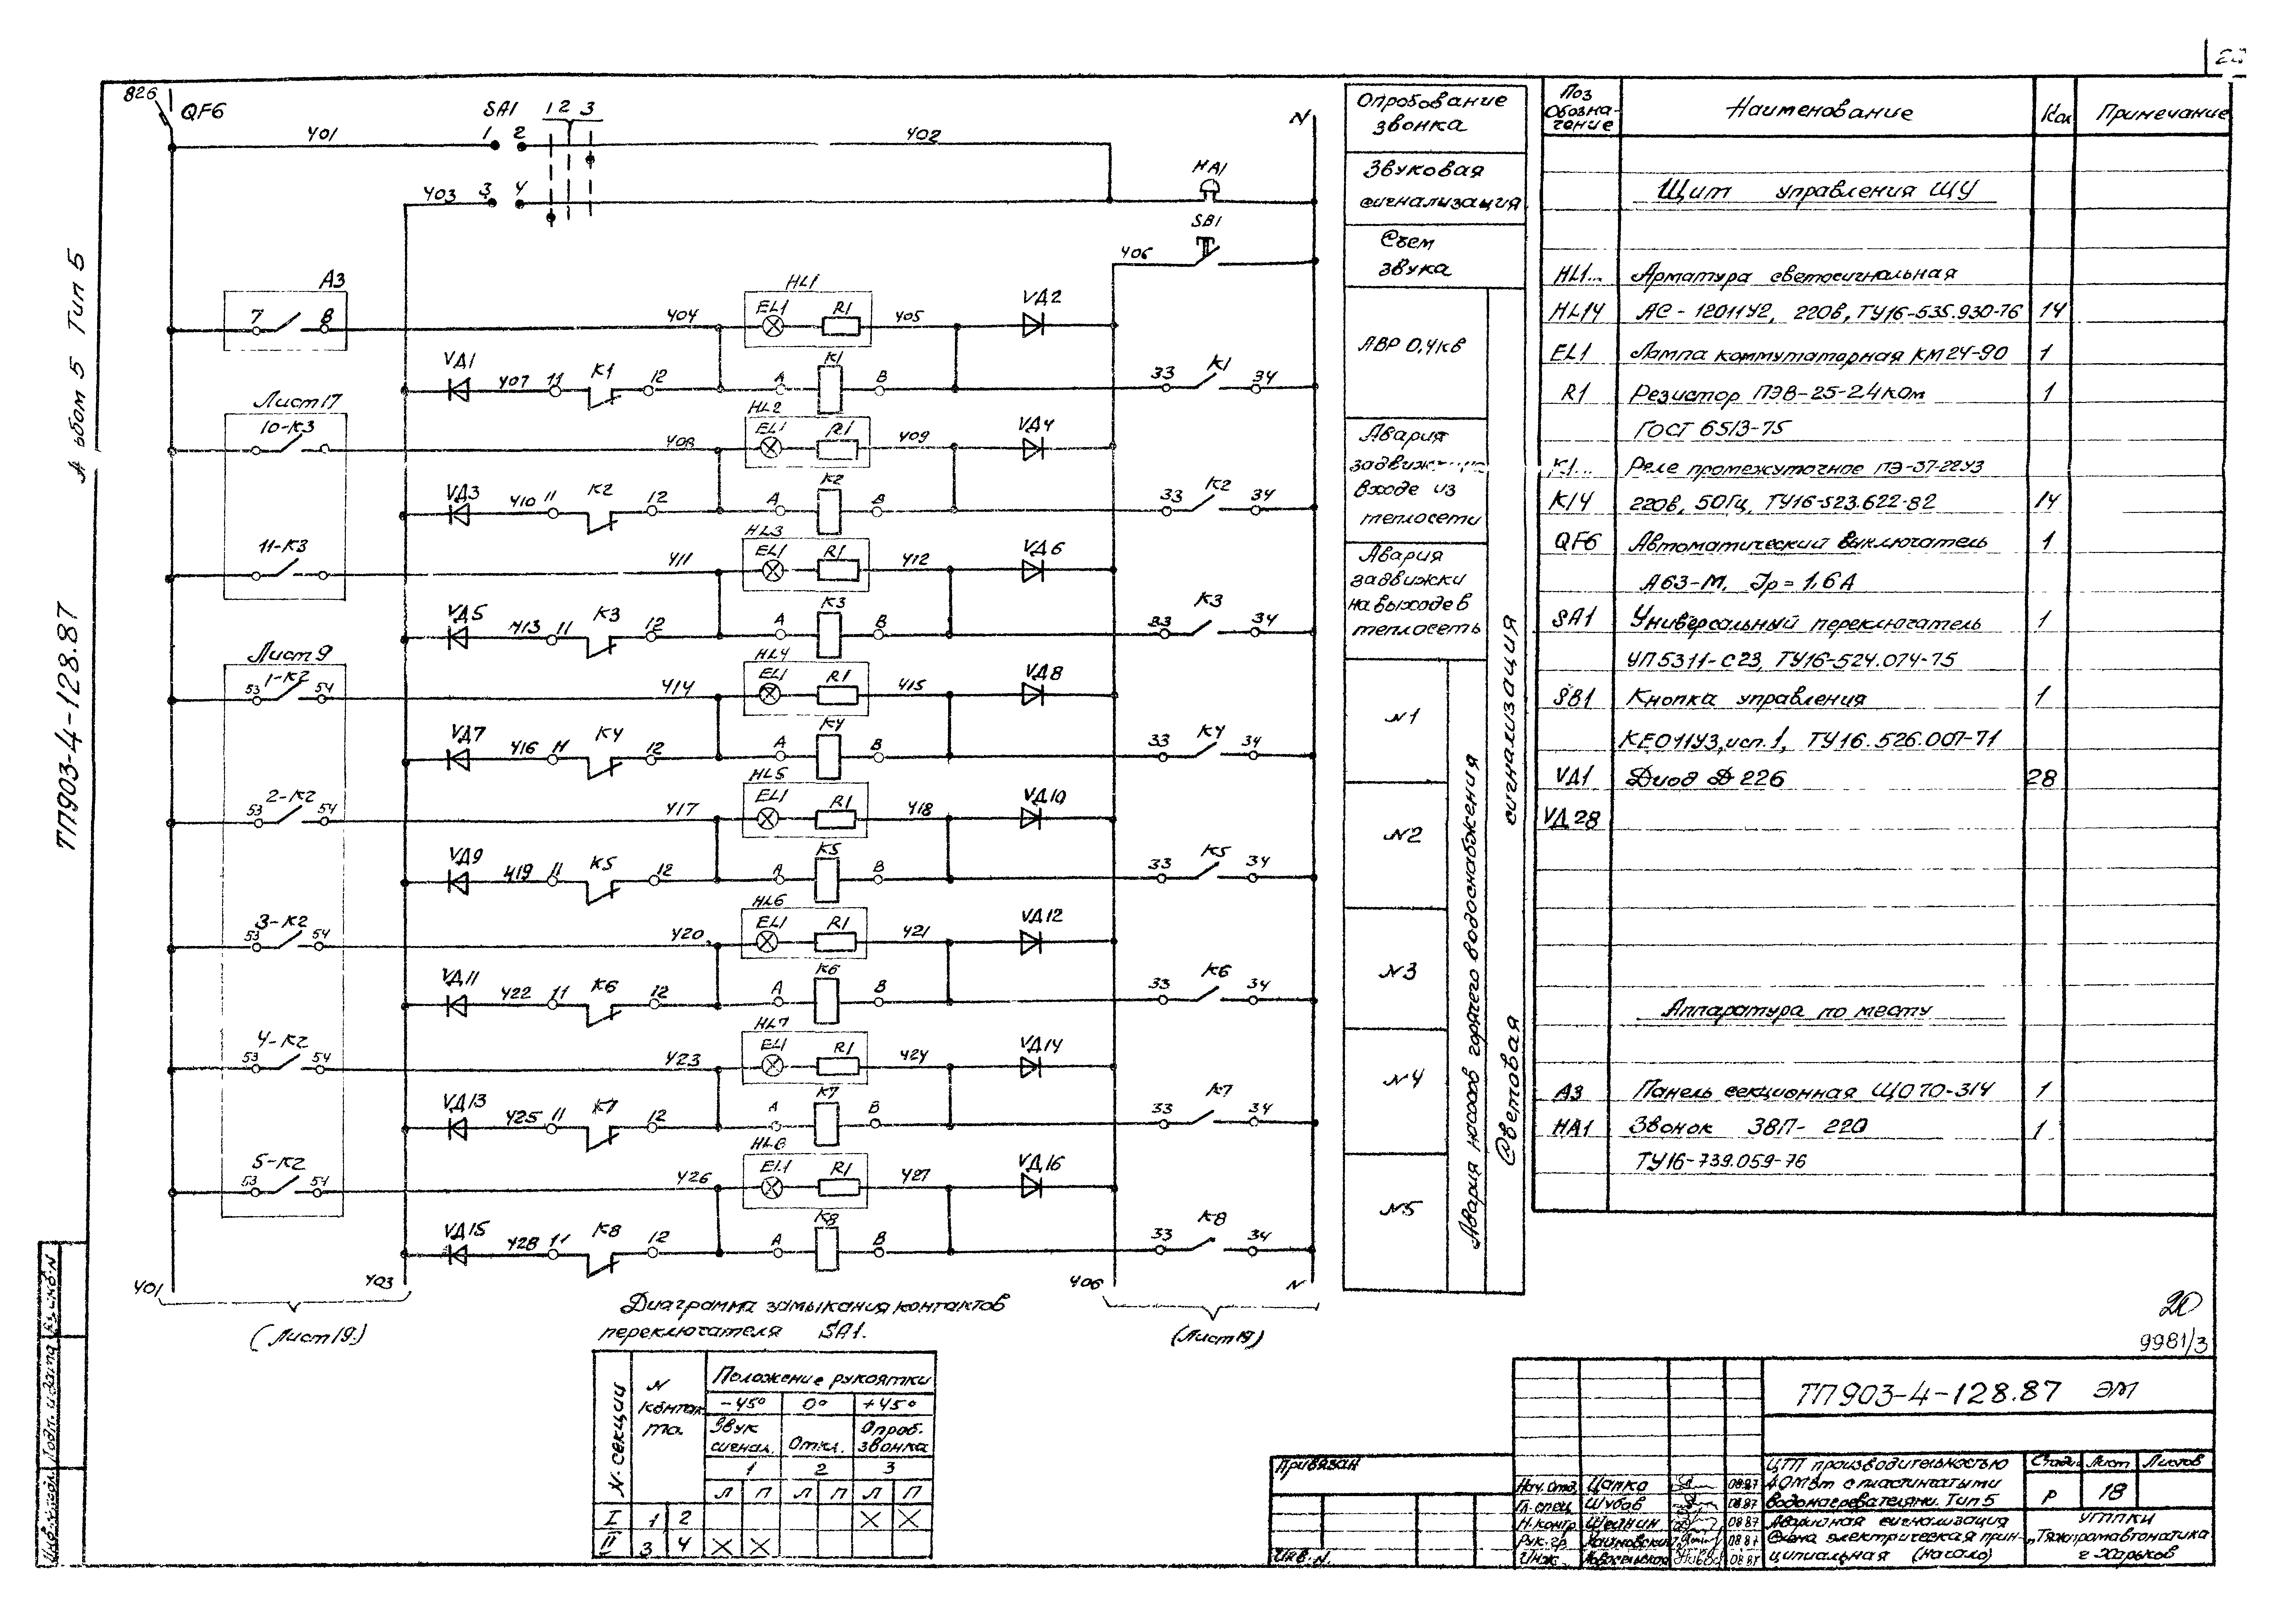 826
QF6
SA1
1 2 3
401
1 2
402
N
403
3 4
HA1
SB1
406
А3
7 8
404
HL1
EL1 R1
405
VД2
VД1
407
11
K1
12
A
K1
B
33
K1
34
Лист17
10-К3
408
HL2
EL1 R1
409
VД4
VД3
410
11
K2
12
A
K2
B
33
K2
34
11-К3
411
HL3
EL1 R1
412
VД6
VД5
413
11
K3
12
A
K3
B
33
K3
34
Лист 9
1-К2
53 54
414
HL4
EL1 R1
415
VД8
VД7
416
11
K4
12
A
K4
B
33
K4
34
2-К2
53 54
417
HL5
EL1 R1
418
VД10
VД9
419
11
K5
12
A
K5
B
33
K5
34
3-К2
53 54
420
HL6
EL1 R1
421
VД12
VД11
422
11
K6
12
A
K6
B
33
K6
34
4-К2
53 54
423
HL7
EL1 R1
424
VД14
VД13
425
11
K7
12
A
K7
B
33
K7
34
5-К2
53 54
426
HL8
EL1 R1
427
VД16
VД15
428
11
K8
12
A
K8
B
33
K8
34
401
403
406
N
(Лист 19.)
(Лист 19)
Опробование
звонка
Звуковая
сигнализация
Съем
звука
АВР 0,4кв
Авария
входе из
теплосети
Авария
задвижки
на выходе в
теплосеть
N1
N2
N3
N4
N5
Авария насосов горячего водоснабжения
Световая сигнализация
Поз
Обозна-
чение
Наименование
Кол
Примечание
Щит управления ЩУ
HL1...
Арматура светосигнальная
HL14
АС-12011У2, 220в, ТУ16-535.930-76
14
EL1
Лампа коммутаторная КМ24-90
1
R1
Резистор ПЭВ-25-2,4Ком
1
ГОСТ 6513-75
K1...
Реле промежуточное ПЭ-37-22У3
K14
220в, 50Гц, ТУ16-523.622-82
14
QF6
Автоматический выключатель
1
А63-М, Jр=1,6А
SA1
Универсальный переключатель
1
УП5311-С23, ТУ16-524.074-75
SB1
Кнопка управления
1
КЕ011У3, исп.1, ТУ16.526.007-71
VД1
Диод Д226
28
VД28
Аппаратура по месту
А3
Панель секционная ЩО70-314
1
HA1
Звонок ЗВП-220
1
ТУ16-739.059-76
Диаграмма замыкания контактов
переключателя SA1.
N секции
N
контак
та
Положение рукоятки
-45° 0° +45°
Звук
сигнал.
Откл.
Опроб.
звонка
1 2 3
Л П Л П Л П
I 1 2 X X
II 3 4 X X
20
9981/3
ТП903-4-128.87 ЭМ
ЦТП производительностью
с пластинчатыми
водонагревателями. Тип 5
Аварийная сигнализация
Схема электрическая прин-
ципиальная (начало)
Стади Лист Листов
Р 18
"Тяжпромавтоматика
г Харьков
Привязан
Инв. N.
Нач. отд. Цапко 08.87
Гл. спец Шубов 08.87
Н. контр Шейнин 08 87
Рук. гр. 08 87
Инж. 08 87
ТП903-4-128.87
ьбом 5 Тип 5
Подп. и дата